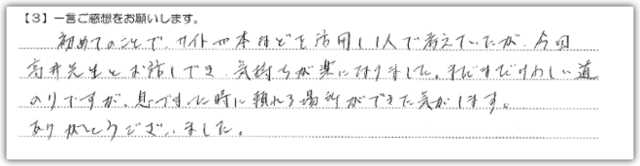 【3】一言ご感想をお願いします。
初めてのことで、サイトや本などを活用し1人で考えていたが、今回
高井先生とお話しでき、気持ちが楽になりました。まだまだけわしい道
のりですが、息づまった時に頼れる場所ができた気がします。
ありがとうございました。